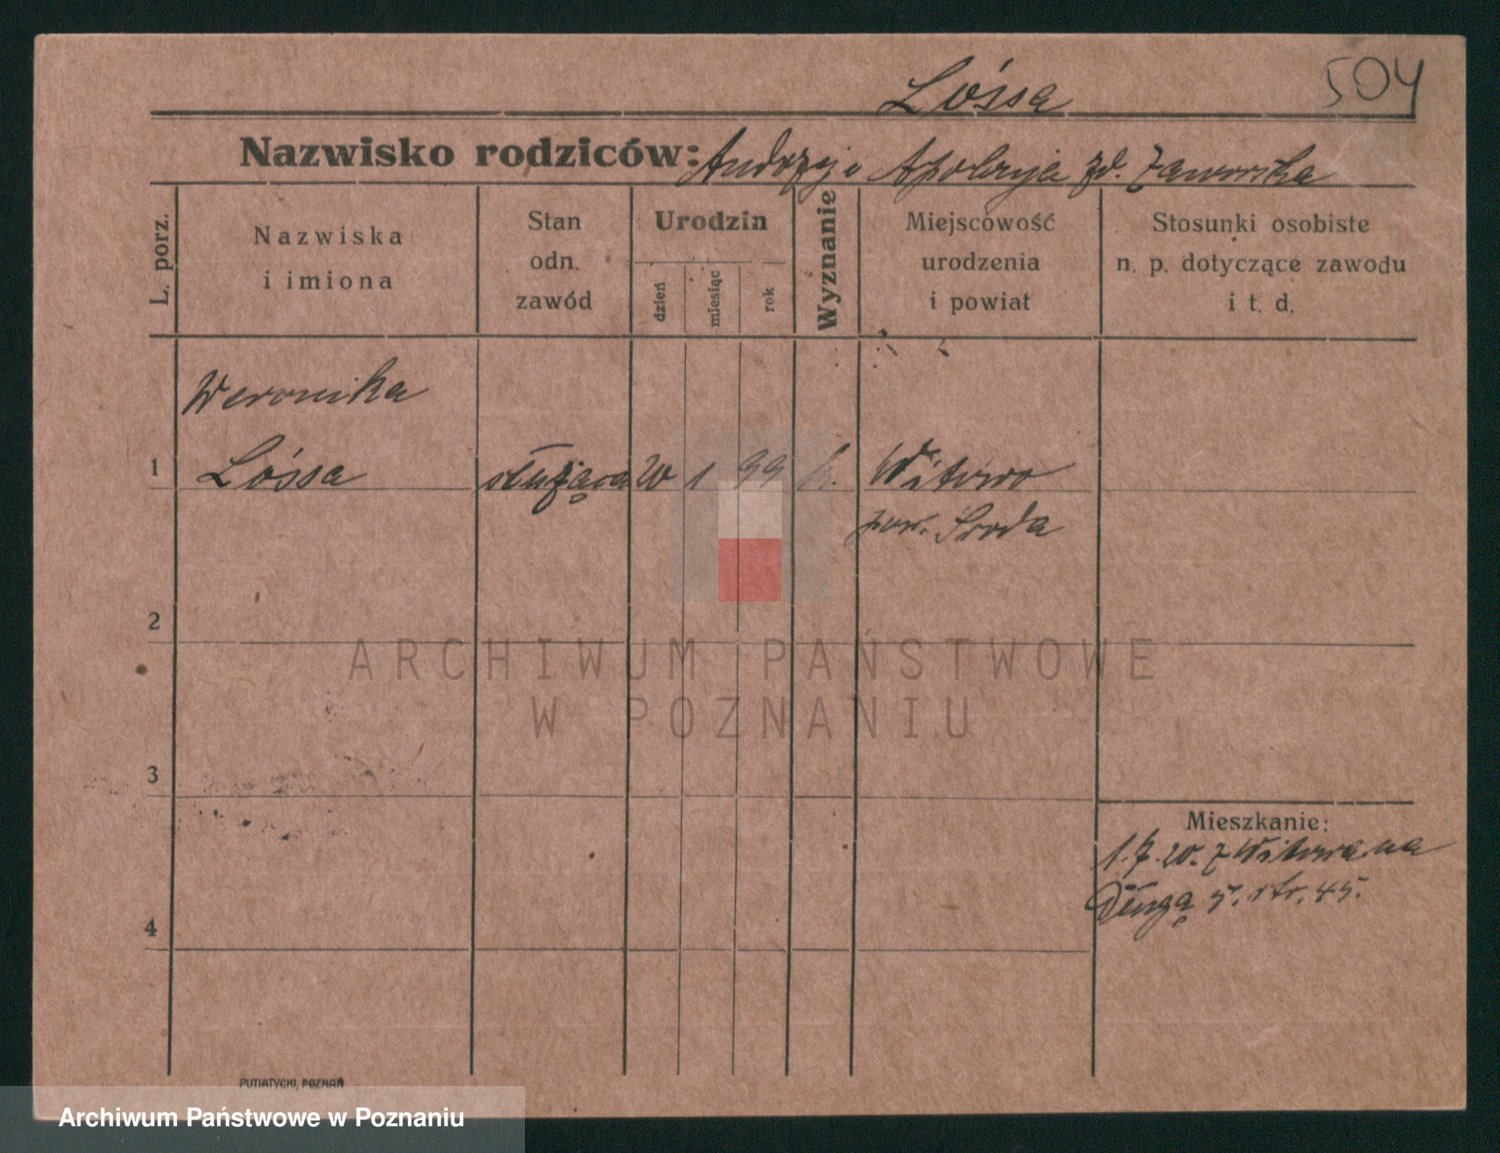 504
Lóssa
Nazwisko rodziców: Andrzej i Apolonja zd. Zaworska
L. porz.
Nazwiska
i imiona
Stan
odn.
zawód
Urodzin
dzień
miesiąc
rok
Wyznanie
Miejscowość
urodzenia
i powiat
Stosunki osobiste
n. p. dotyczące zawodu
i t. d.
Weronika
1 Lóssa służąca 20 1 99 k. Witowo
pow. Środa
2
3
4
Mieszkanie:
1. 7. 20. z Witowa na
Długą 5. str. 45.
ARCHIWUM PAŃSTWOWE
W POZNANIU
PUTIATYCKI, POZNAŃ
Archiwum Państwowe w Poznaniu